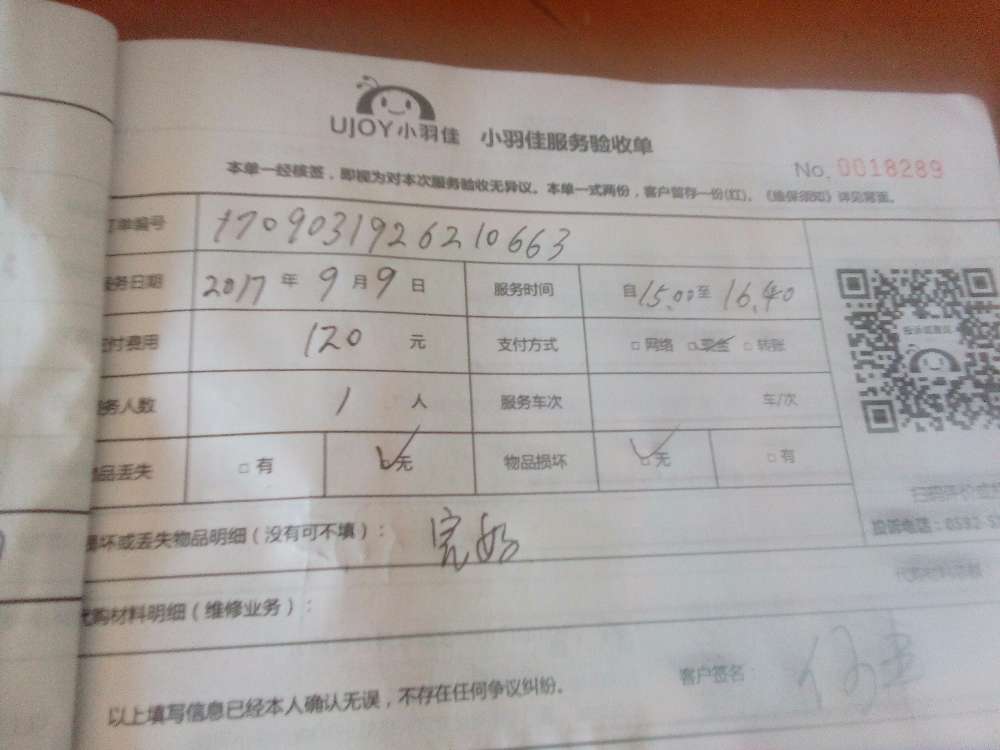 UJOY小羽佳 小羽佳服务验收单
No. 0018289
本单一经核签，即视为对本次服务验收无异议。本单一式两份，客户留存一份(红)。《维保须知》详见背面。
单编号 1709031926210663
务日期 2017 年 9 月 9 日 服务时间 自 15.00 至 16.40
付费用 120 元 支付方式 □ 网络 □ 现金 □ 转账
务人数 1 人 服务车次 车/次
品丢失 □ 有 □ 无 物品损坏 □ 无 □ 有
投诉或建议
坏或丢失物品明细（没有可不填）： 完好
投诉电话：0592-5
购材料明细（维修业务）：
客户签名：
以上填写信息已经本人确认无误，不存在任何争议纠纷。